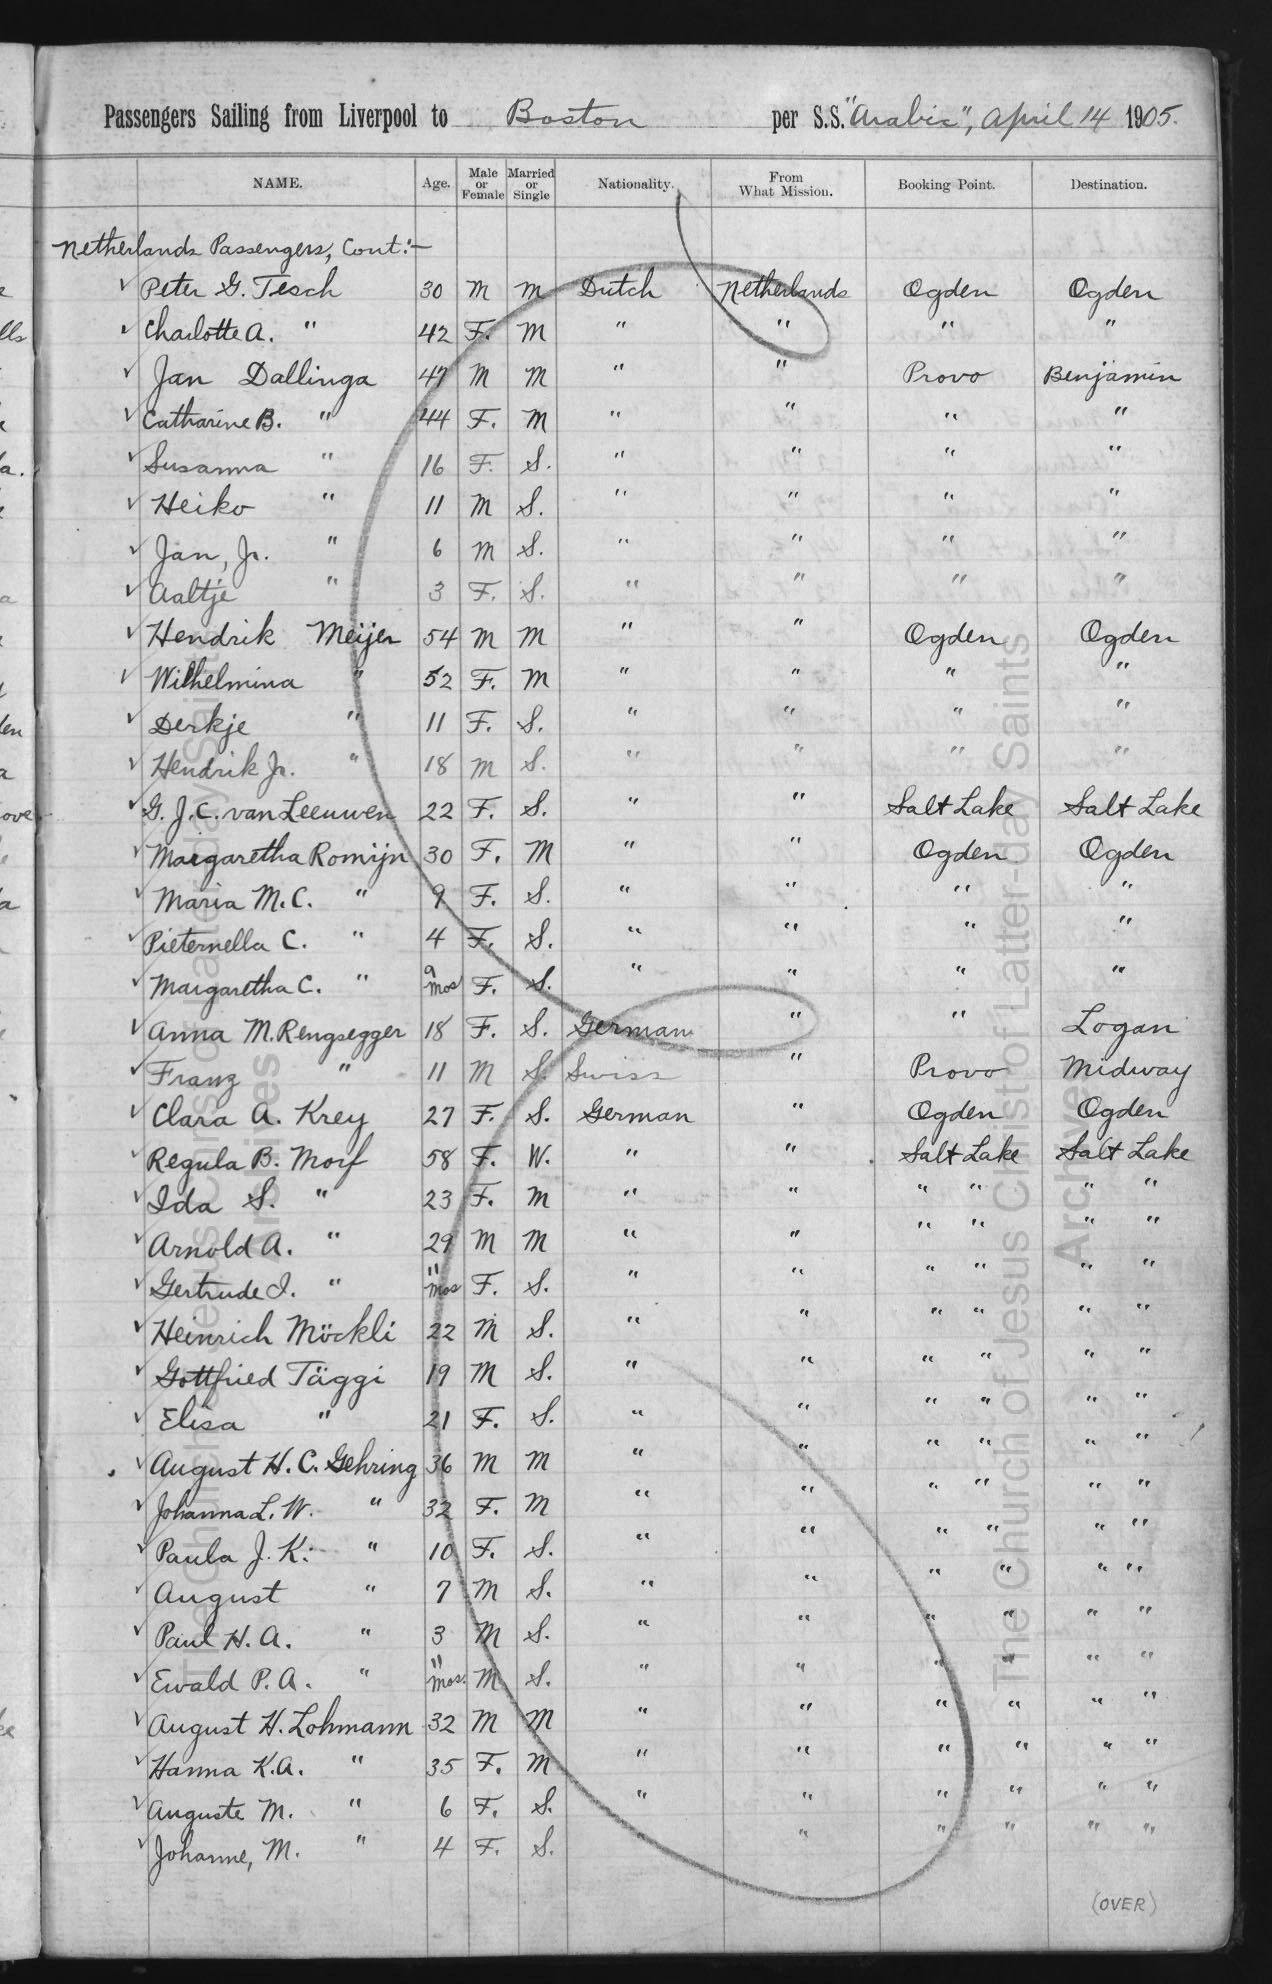 Passengers Sailing from Liverpool to Boston per S.S. "Arabic", April 14 1905.
NAME. Age. Male or Female Married or Single Nationality. From What Mission. Booking Point. Destination.
Netherlands Passengers, Cont:—
✓ Peter G. Tesch 30 M M Dutch Netherlands Ogden Ogden
✓ Charlotte A. " 42 F. M " " " "
✓ Jan Dallinga 47 M M " " Provo Benjamin
✓ Catharine B. " 44 F. M " " " "
✓ Susanna " 16 F. S. " " " "
✓ Heiko " 11 M S. " " " "
✓ Jan, Jr. " 6 M S. " " " "
✓ Aaltje " 3 F. S. " " " "
✓ Hendrik Meijer 54 M M " " Ogden Ogden
✓ Wilhelmina " 52 F. M " " " "
✓ Derkje " 11 F. S. " " " "
✓ Hendrik Jr. " 18 M S. " " " "
✓ G. J. C. van Leeuwen 22 F. S. " " Salt Lake Salt Lake
✓ Margaretha Romijn 30 F. M " " Ogden Ogden
✓ Maria M. C. " 9 F. S. " " " "
✓ Pieternella C. " 4 F. S. " " " "
✓ Margaretha C. " 9 mos F. S. " " " "
✓ Anna M. Rengsegger 18 F. S. German " " Logan
✓ Franz " 11 M S. Swiss " Provo Midway
✓ Clara A. Krey 27 F. S. German " Ogden Ogden
✓ Regula B. Morf 58 F. W. " " Salt Lake Salt Lake
✓ Ida S. " 23 F. M " " " " " "
✓ Arnold A. " 29 M M " " " " " "
✓ Gertrude I. " 11 mos F. S. " " " " " "
✓ Heinrich Möckli 22 M S. " " " " " "
✓ Gottfried Täggi 19 M S. " " " " " "
✓ Elisa " 21 F. S. " " " " " "
✓ August H. C. Gehring 36 M M " " " " " "
✓ Johanna L. W. " 32 F. M " " " " " "
✓ Paula J. K. " 10 F. S. " " " " " "
✓ August " 7 M S. " " " " " "
✓ Paul H. A. " 3 M S. " " " " " "
✓ Ewald P. A. " 11 mos. M S. " " " " " "
✓ August H. Lohmann 32 M M " " " " " "
✓ Hanna K. A. " 35 F. M " " " " " "
✓ Auguste M. " 6 F. S. " " " " " "
✓ Johanne, M. " 4 F. S. " " " " " "
(OVER)
The Church of Jesus Christ of Latter-day Saints
Archives
The Church of Jesus Christ of Latter-day Saints
Archives